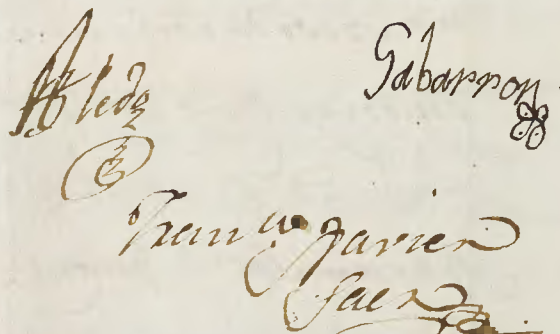 Aledo
Gabarron
Franco Javier
Saez